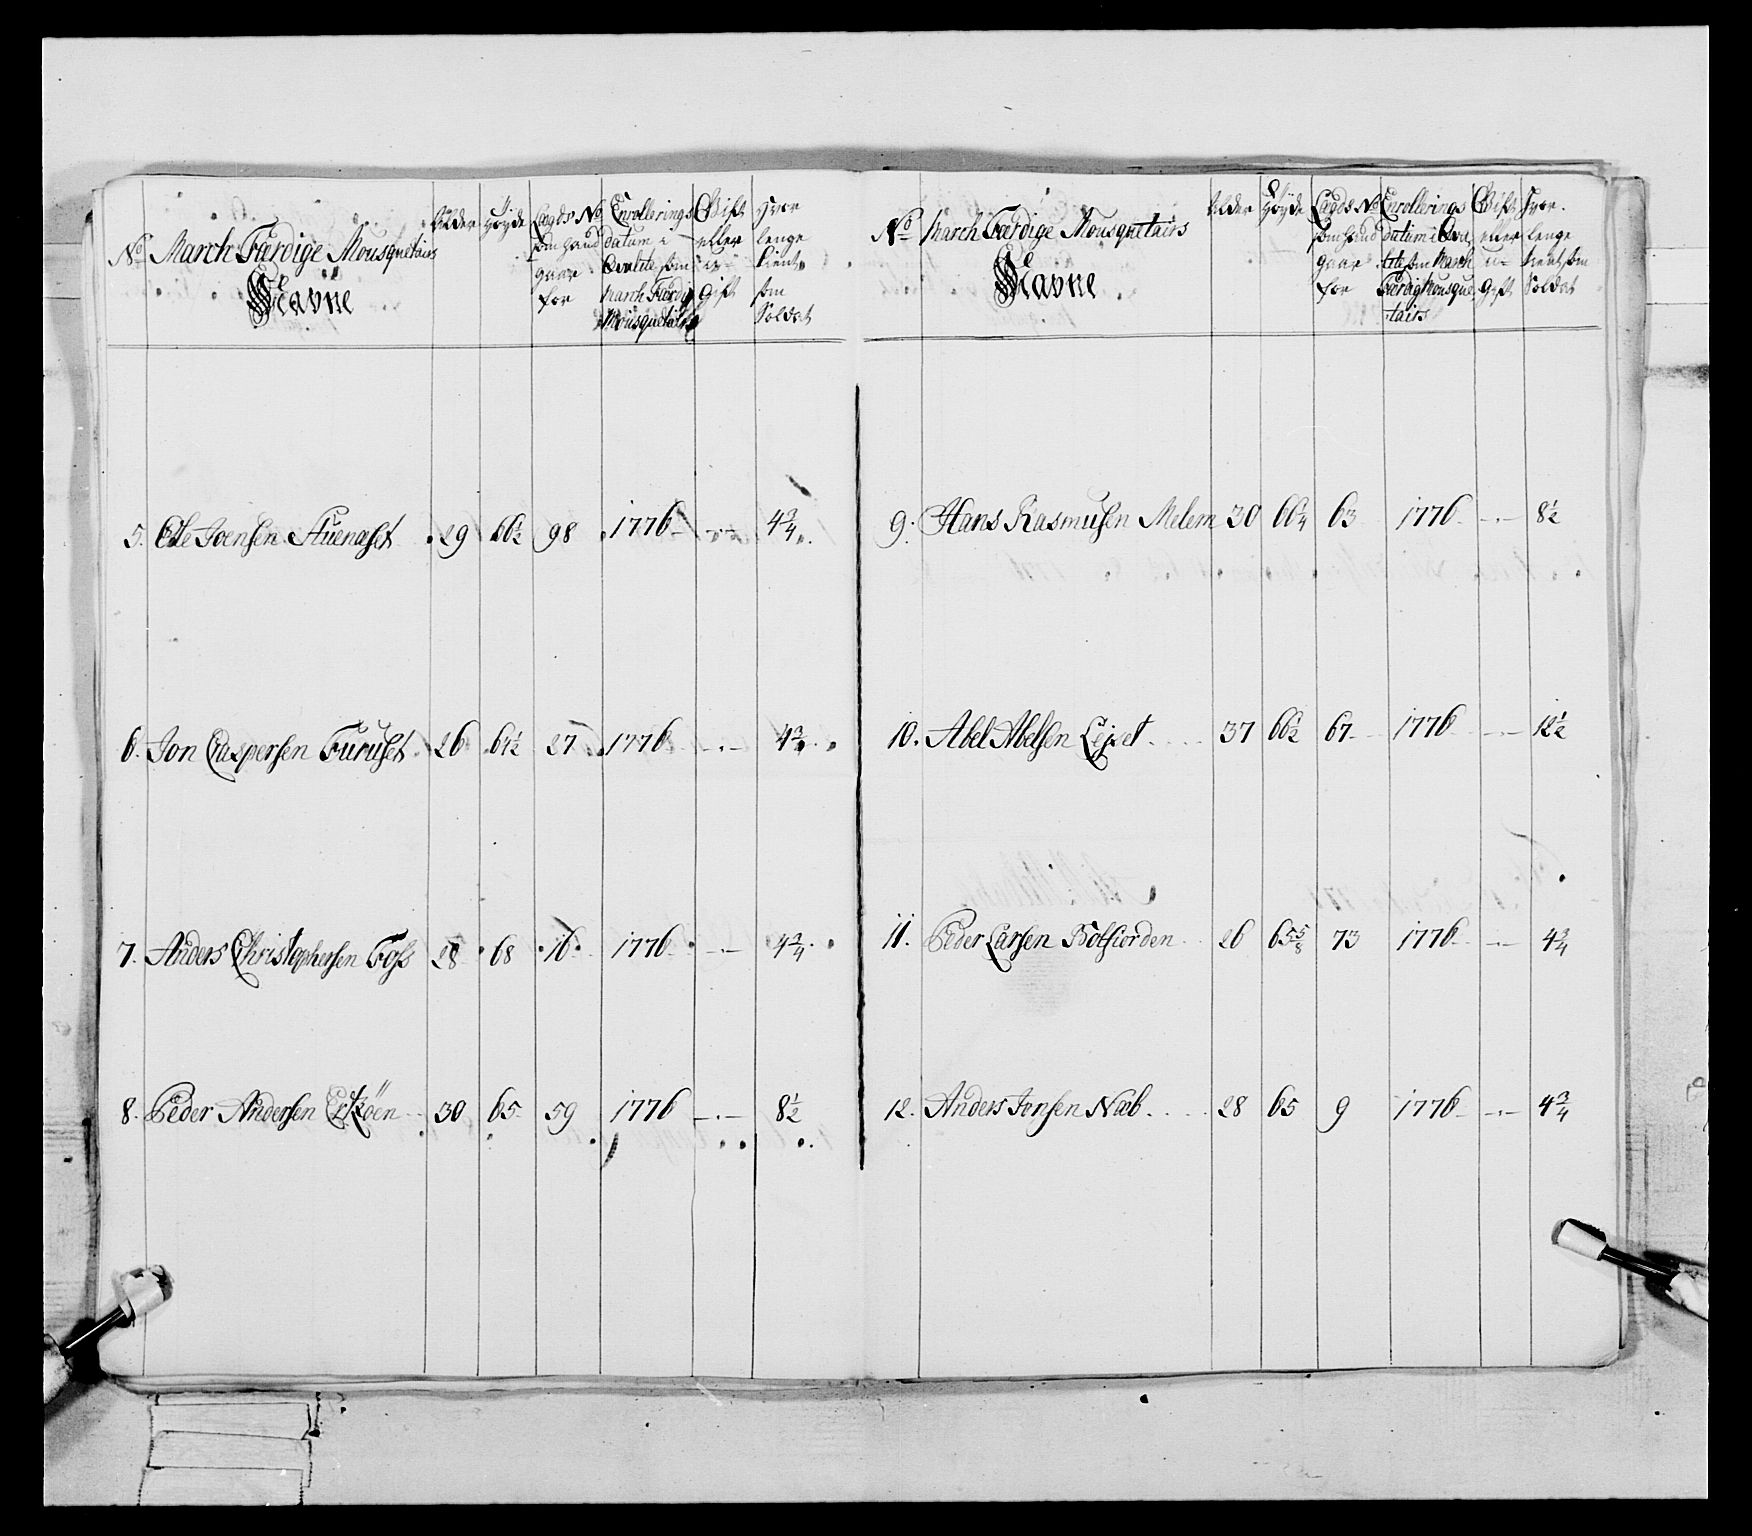 No March Færdige Mousquetairs Navne | Alder | Høyde | Lægds No som hand gaar for | Enrollerings datum i Qvalite som March Færdig Mousquetairs | Gift eller u- Gift | Hvor lenge tient som Soldat
5. Ole Joensen Huenaset 29 66½ 98 1776 -.- 4¾
6. Jon Caspersen Furuset 26 64½ 27 1776 -.- 4¾
7. Anders Christophersen Foss 28 68 16 1776 -.- 4¾
8. Peder Andersen 30 65 59 1776 -.- 8½
No March Færdige Mousquetairs Navne | Alder | Høyde | Lægds No som hand gaar for | Enrollerings datum i Qva- lite som March Færdig Mousque- tairs | Gift eller u- Gift | Hvor lenge tient som Soldat
9. Hans Rasmusen Melem 30 66¼ 63 1776 -.- 8½
10. Abel Abelsen Lejset 37 66½ 67 1776 -.- 12½
11. Peder Larsen Bolfiorden 26 65⅝ 73 1776 -.- 4¾
12. Anders Jonsen Næb 28 65 9 1776 -.- 4¾